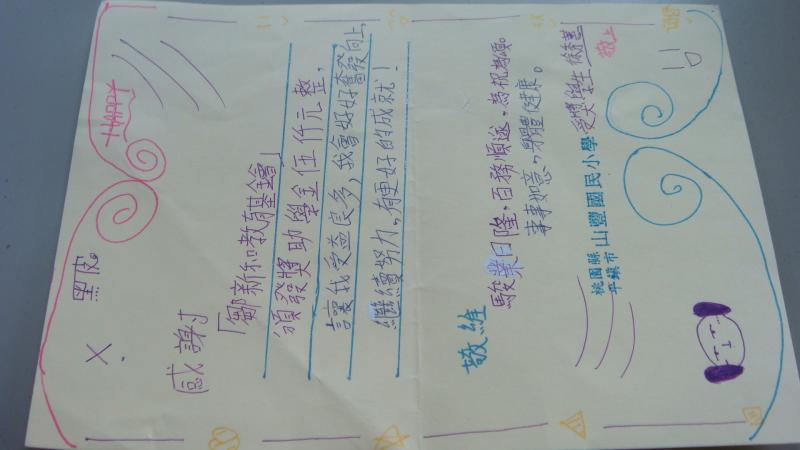 HAPPY
黑皮
感謝
「鄒新和教育基金會」
頒發獎助學金伍仟元整,
讓我受益良多,我會好好奮發向上,
繼續努力,有更好的成就!
敬維
駿業日隆,百務順遂,為祝為頌。
事事如意,身體健康。
桃園縣
平鎮市
山豐國民小學
受獎學生
敬上